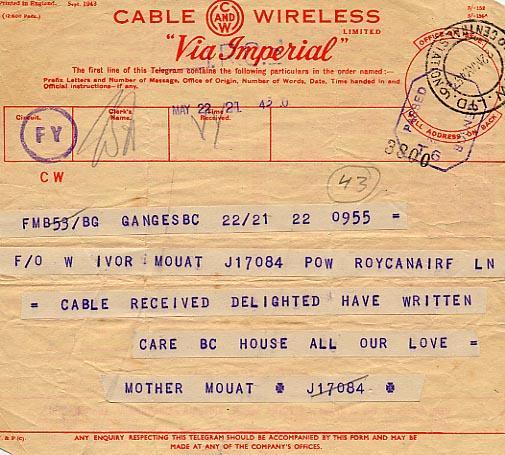 Printed in England. Sept. 1943
(12,600 Pads.)
CABLE C AND W WIRELESS
LIMITED
"Via Imperial"
The first line of this Telegram contains the following particulars in the order named:—
Prefix Letters and Number of Message, Office of Origin, Number of Words, Date, Time handed in and
Official instructions—if any.
OFFICE OF ISSUE
FULL ADDRESS ON BACK
PASSED
T6
3800
Circuit.
Clerk's
Name.
Time
Received.
MAY 22 21
FY
CW
43
FMB53/BG GANGESBC 22/21 22 0955 =
F/O W IVOR MOUAT J17084 POW ROYCANAIRF LN
= CABLE RECEIVED DELIGHTED HAVE WRITTEN
CARE BC HOUSE ALL OUR LOVE =
MOTHER MOUAT * J17084 *
& P(C).
ANY ENQUIRY RESPECTING THIS TELEGRAM SHOULD BE ACCOMPANIED BY THIS FORM AND MAY BE
MADE AT ANY OF THE COMPANY'S OFFICES.